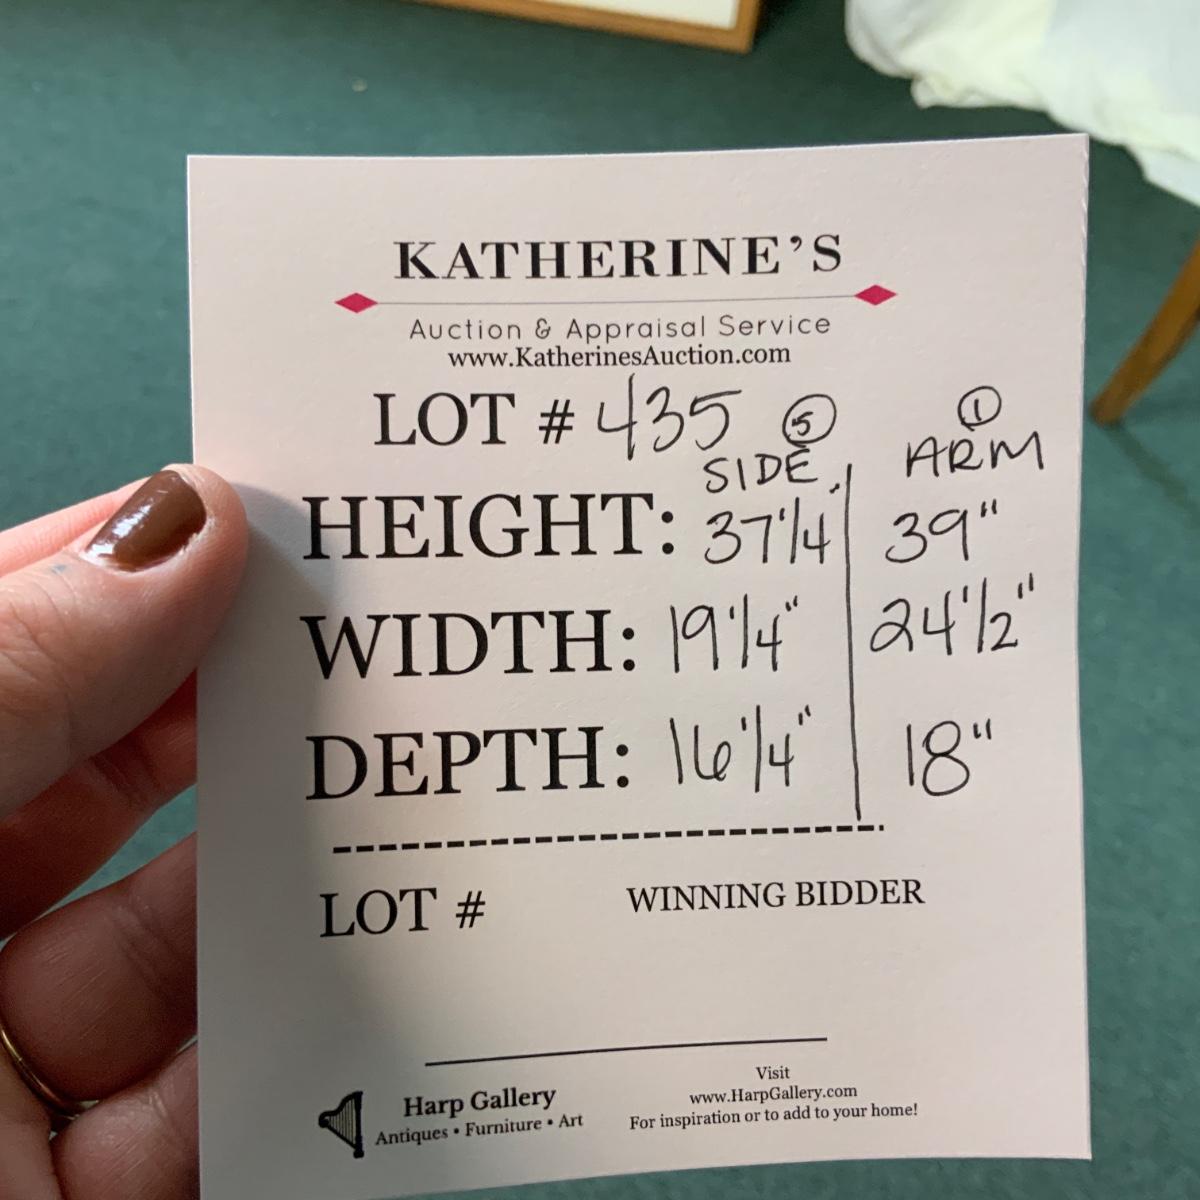 KATHERINE'S
Auction & Appraisal Service
www.KatherinesAuction.com
LOT # 435 5 1
SIDE ARM
HEIGHT: 37 1/4 39"
WIDTH: 19 1/4" 24 1/2"
DEPTH: 16 1/4" 18"
LOT # WINNING BIDDER
Harp Gallery
Antiques • Furniture • Art
Visit
www.HarpGallery.com
For inspiration or to add to your home!